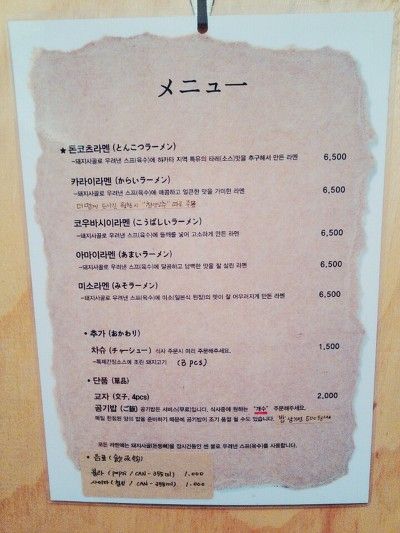 メニュー
★돈코츠라멘 (とんこつラーメン)
-돼지사골로 우려낸 스프(육수)에 하카타 지역 특유의 타레(소스)맛을 추구해서 만든 라멘 6,500
카라이라멘 (からいラーメン)
-돼지사골로 우려낸 스프(육수)에 매콤하고 얼큰한 맛을 가미한 라멘 6,500
코우바시이라멘 (こうばしいラーメン)
-돼지사골로 우려낸 스프(육수)에 들깨를 넣어 고소하게 만든 라멘 6,500
아마이라멘 (あまいラーメン)
-돼지사골로 우려낸 스프(육수)에 달콤하고 담백한 맛을 잘 살린 라멘 6,500
미소라멘 (みそラーメン)
-돼지사골로 우려낸 스프(육수)에 미소(일본식 된장)의 맛이 잘 어우러지게 만든 라멘 6,500
• 추가 (おかわり)
차슈 (チャーシュー) 식사 주문시 미리 주문해주세요. 1,500
-특제간장소스에 조린 돼지고기 (3 pcs)
• 단품 (単品)
교자 (交子, 4pcs) 2,000
공기밥 (ご飯) 공기밥은 서비스(무료)입니다. 식사중에 원하는 "개수" 주문해주세요.
매일 한정된 양의 밥을 준비하기 때문에 공기밥이 조기 품절 될 수도 있습니다.
모든 라멘에는 돼지사골(돈등뼈)을 장시간동안 센 불로 우려낸 스프(육수)를 사용합니다.
• 음료 (飲み物)
콜라 (pepsi / CAN - 355ml) 1.000
사이다 (칠성 / CAN - 355ml) 1.000